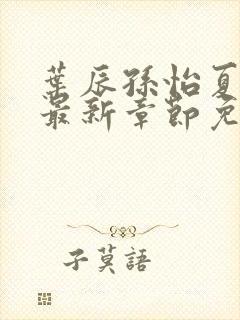 葉辰孫怡夏
最新章節免
子莫語